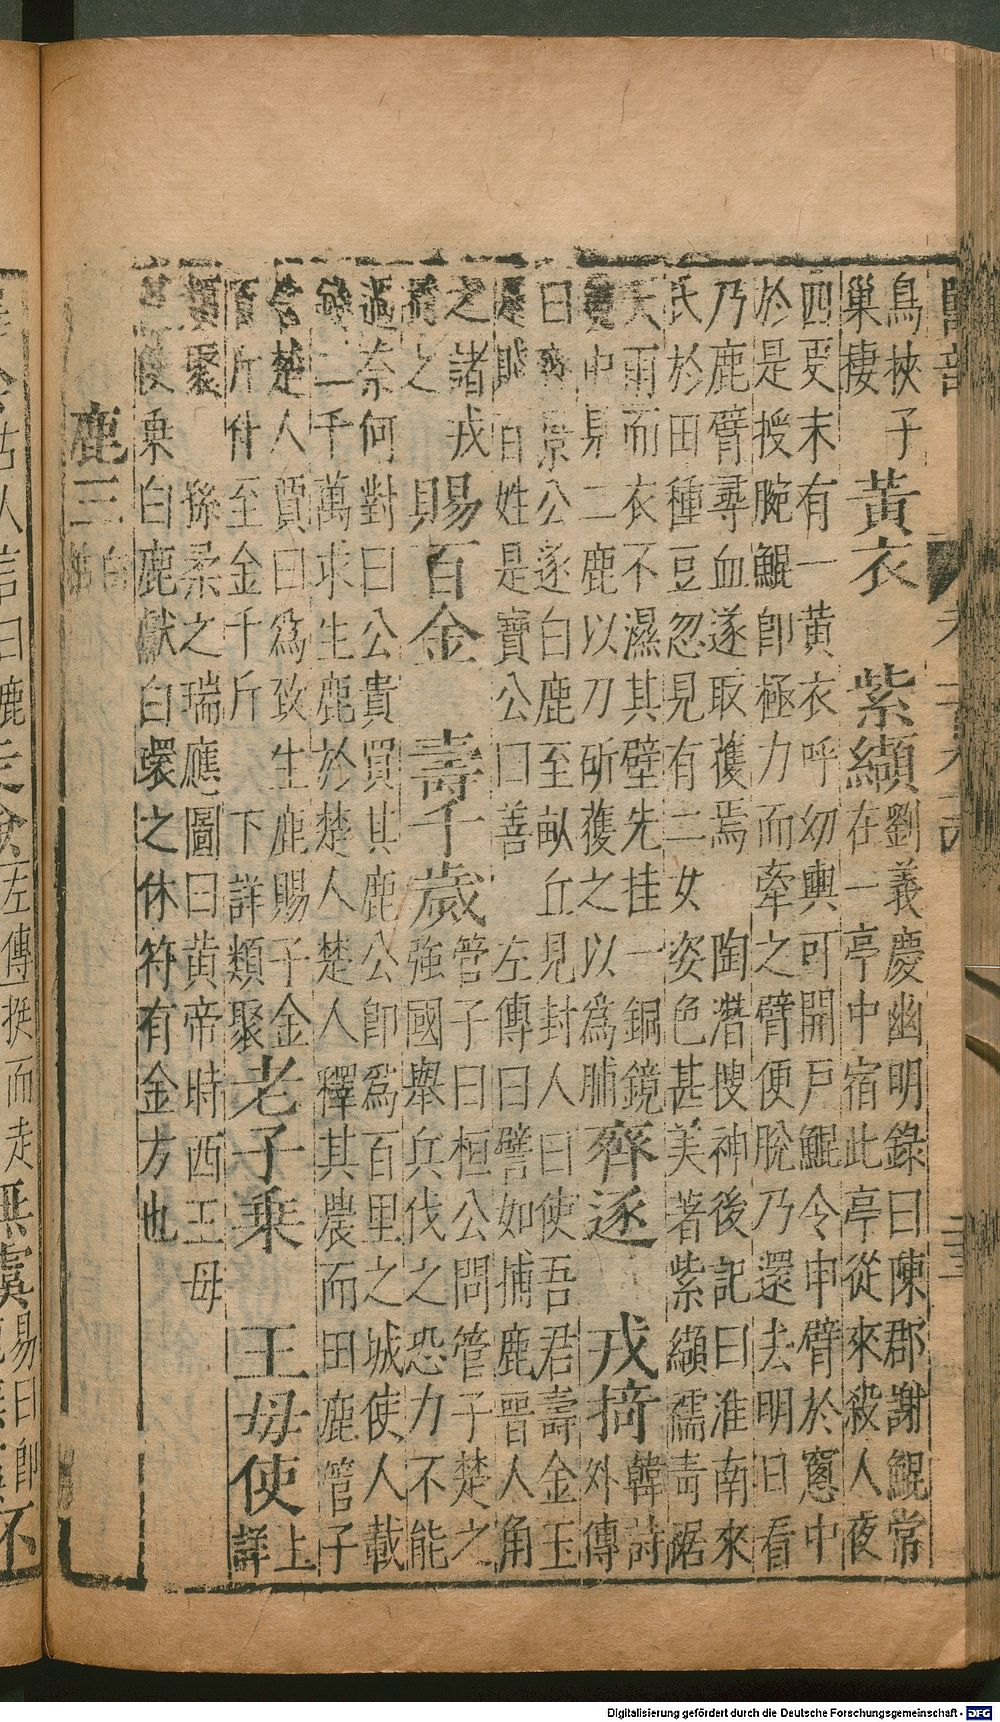 鳥挾子
巢棲
黃衣
紫纈
劉義慶幽明錄曰陳郡謝鯤常
在一亭中宿此亭從來殺人夜
四更末有一黃衣呼幼輿可開戶鯤令申臂於窗中
於是授腕鯤卽極力而牽之臂便脫乃還去明日看
乃鹿臂尋血遂取獲焉
陶潛搜神後記曰淮南來
氏於田種豆忽見有二女姿色甚美著紫纈襦靑裾
天雨而衣不濕其壁先挂一銅鏡
中見二鹿以刀斫獲之以爲脯
齊逐
戎掎
韓詩
外傳
曰 景公逐白鹿至畝丘見封人曰使吾君壽金玉
是賤百姓是寶公曰善
左傳曰譬如捕鹿晉人角
之諸戎
之
賜百金
壽千歲
管子曰桓公問管子楚之
強國舉兵伐之恐力不能
過奈何對曰公貴買其鹿公卽爲百里之城使人載
錢二千萬求生鹿於楚人楚人釋其農而田鹿管子
告楚人賈曰爲致生鹿賜子金
百斤什至金千斤下詳類聚
老子乘
王母使
上
詳
類聚
孫柔之瑞應圖曰黃帝時西王母
使乘白鹿獻白環之休符有金方也
鹿三
白
Digitalisierung gefördert durch die Deutsche Forschungsgemeinschaft - DFG